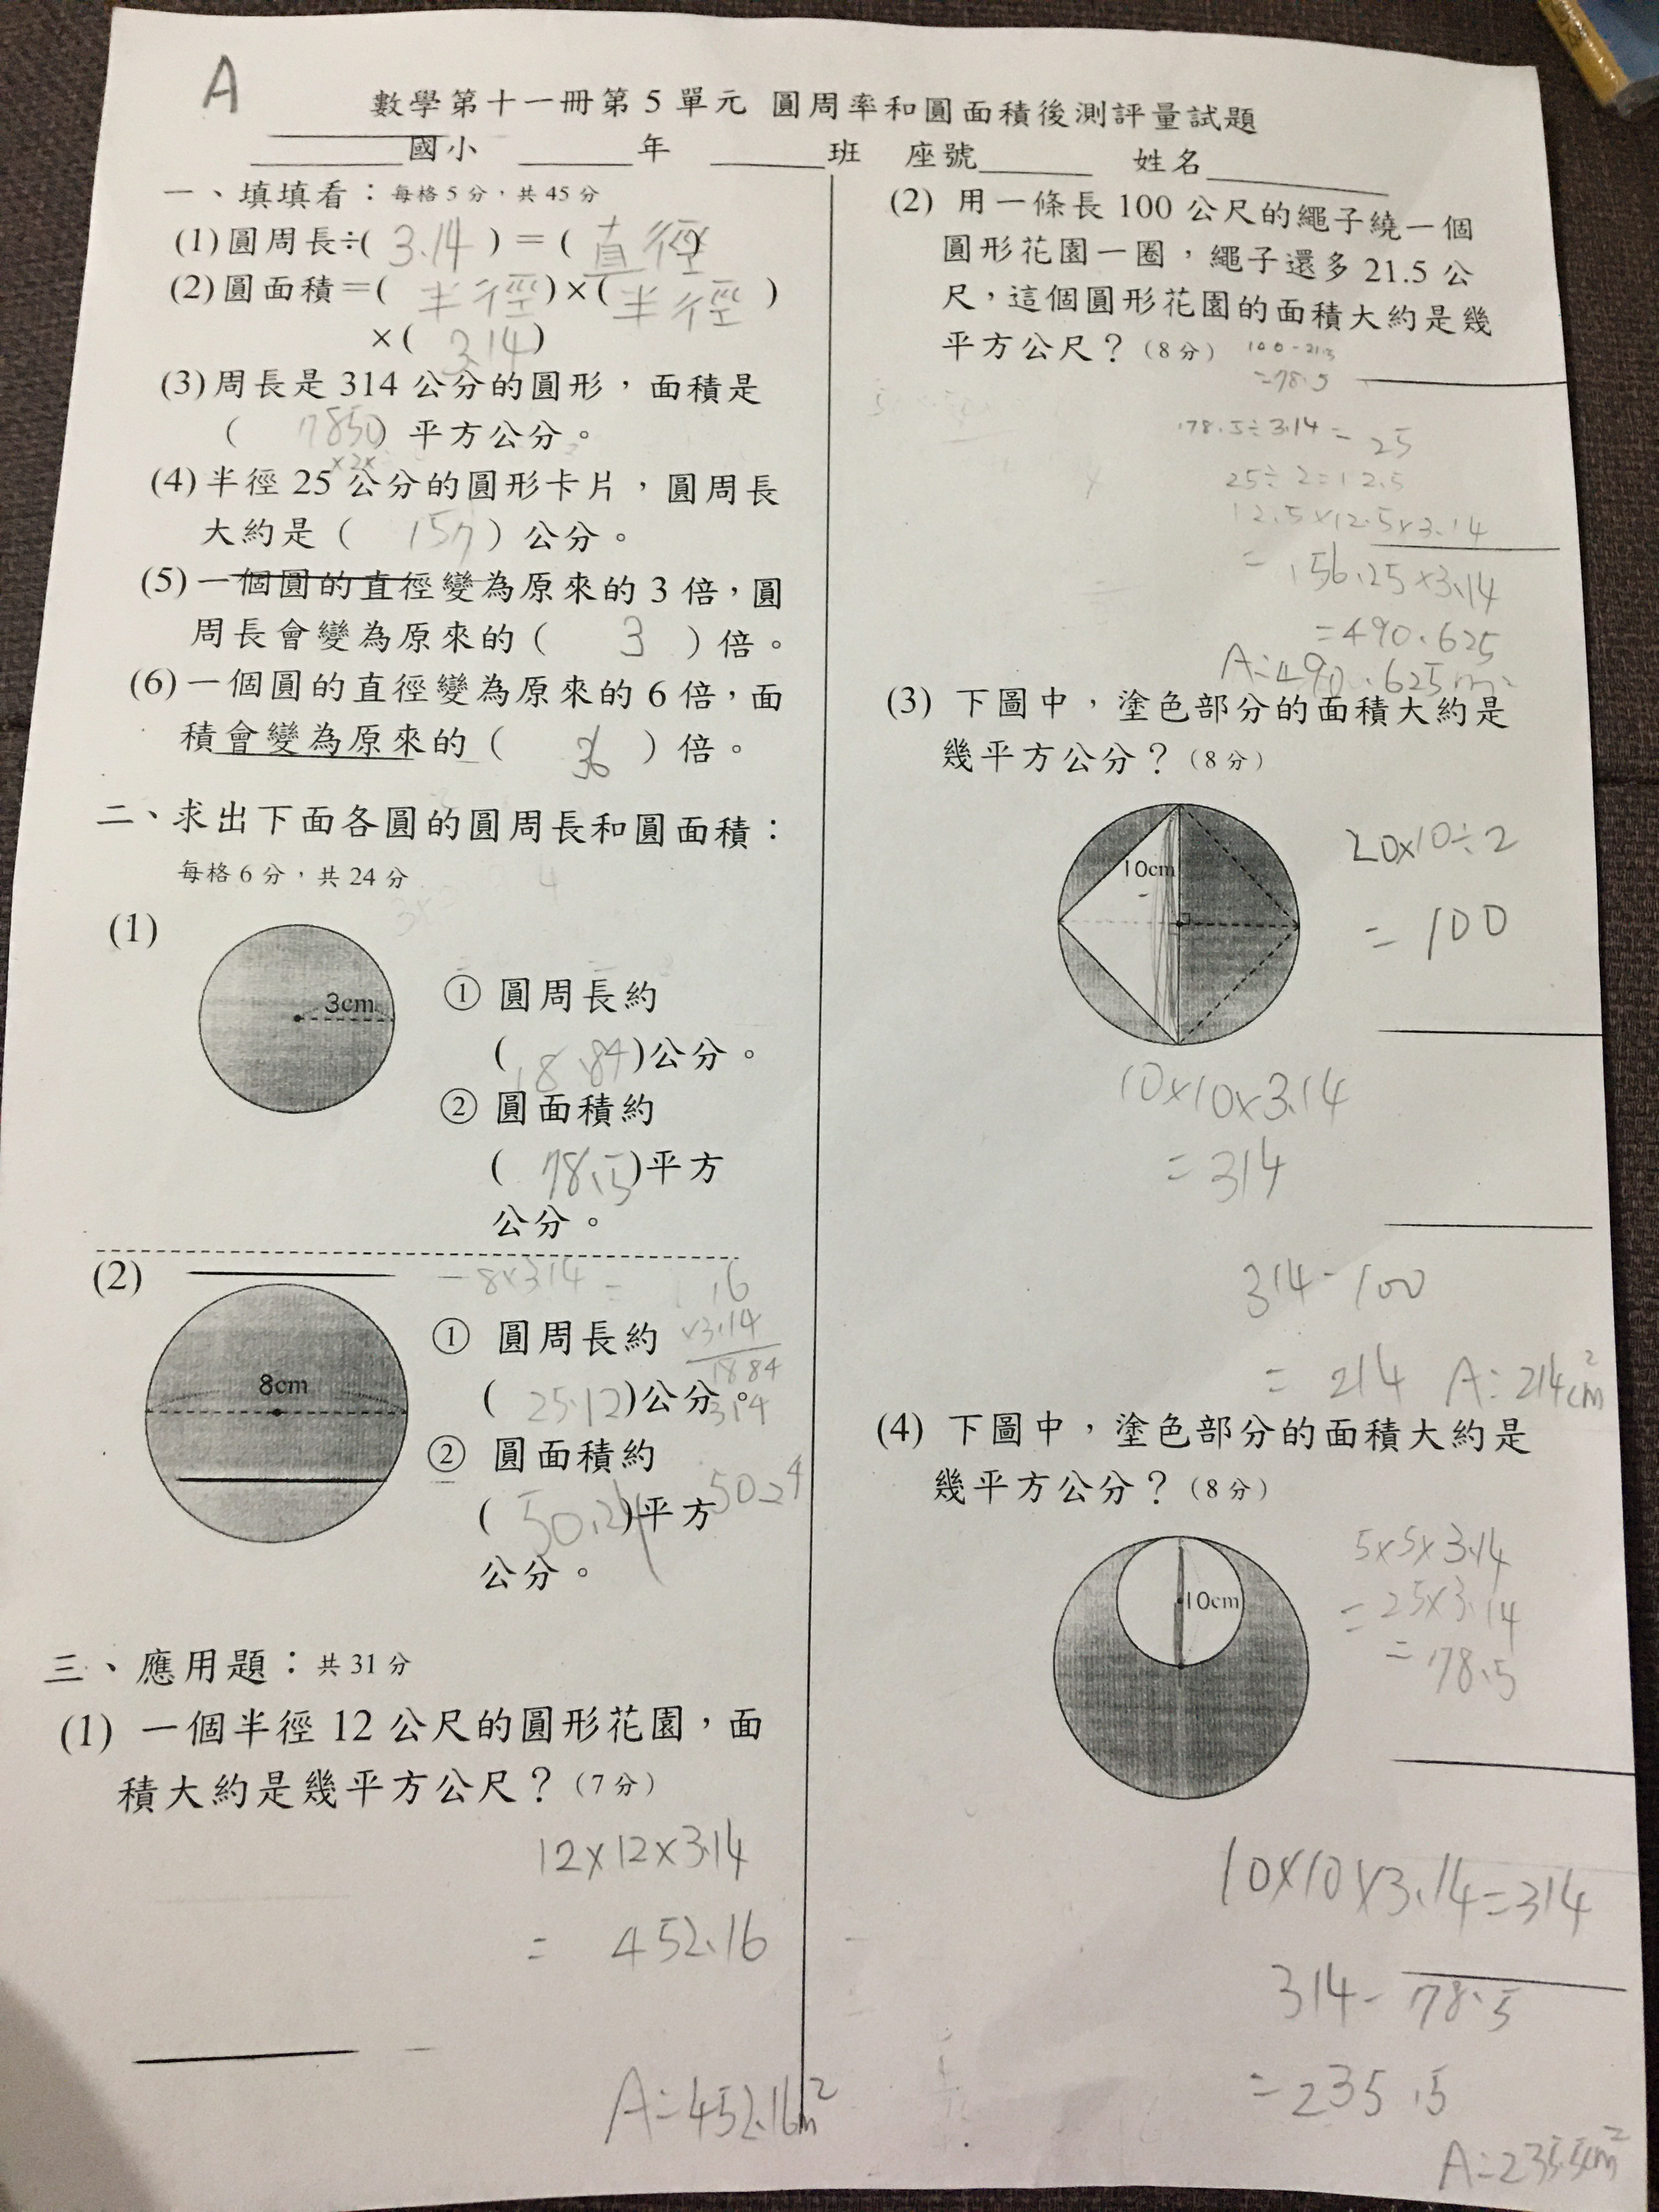 A
數學第十一冊第 5 單元 圓周率和圓面積後測評量試題
國小 年 班 座號 姓名
一、填填看：每格 5 分，共 45 分
(1)圓周長÷( 3.14 ) = ( 直徑 )
(2)圓面積＝( 半徑 )×( 半徑 )
×( 3.14 )
(3)周長是 314 公分的圓形，面積是
( 7850 ) 平方公分。
(4)半徑 25 公分的圓形卡片，圓周長
大約是 ( 157 ) 公分。
(5)一個圓的直徑變為原來的 3 倍，圓
周長會變為原來的 ( 3 ) 倍。
(6)一個圓的直徑變為原來的 6 倍，面
積會變為原來的 ( 36 ) 倍。
二、求出下面各圓的圓周長和圓面積：
每格 6 分，共 24 分
(1)
3cm
① 圓周長約
( 18.84 )公分。
② 圓面積約
( 78.5 )平方
公分。
(2)
8×3.14=
8cm
16
×3.14
1884
314
50.24
① 圓周長約
( 25.12 )公分。
② 圓面積約
( 50.24 )平方
公分。
三、應用題：共 31 分
(1) 一個半徑 12 公尺的圓形花園，面
積大約是幾平方公尺？（7 分）
12×12×3.14
= 452.16
A:452.16m²
(2) 用一條長 100 公尺的繩子繞一個
圓形花園一圈，繩子還多 21.5 公
尺，這個圓形花園的面積大約是幾
平方公尺？（8 分）
100-21.5
=78.5
78.5÷3.14=25
25÷2=12.5
12.5×12.5×3.14
=156.25×3.14
=490.625
A:490.625m²
(3) 下圖中，塗色部分的面積大約是
幾平方公分？（8 分）
10cm
20×10÷2
= 100
10×10×3.14
= 314
314-100
= 214 A:214cm²
(4) 下圖中，塗色部分的面積大約是
幾平方公分？（8 分）
10cm
5×5×3.14
=25×3.14
=78.5
10×10×3.14=314
314-78.5
=235.5
A:235.5cm²